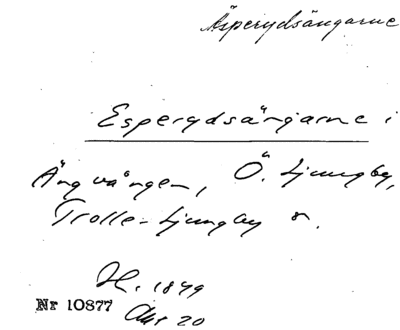 Äsperydsängarne
Esperydsängarne i
Ängvången, Ö. Ljungby,
Trolle-Ljungby s.
H. 1849
Nr 10877 Akt 20